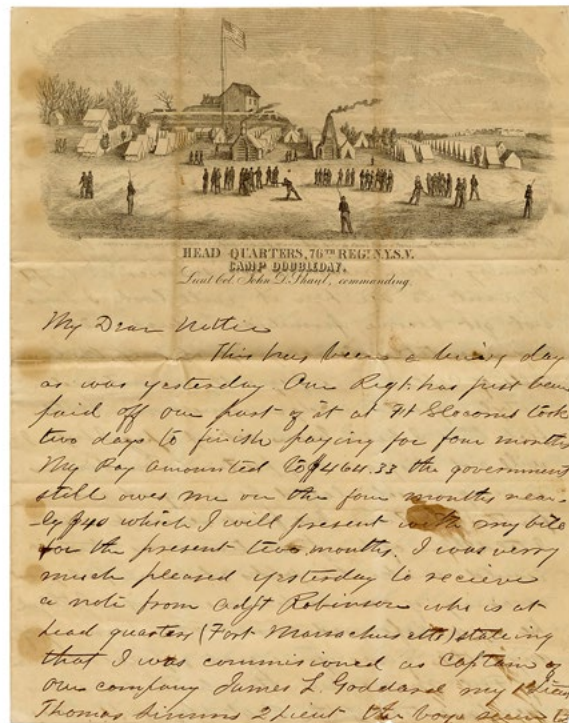 HEAD QUARTERS, 76TH REGT. N.Y.S.V.
CAMP DOUBLEDAY.
Lieut Col. John D. Shaul, commanding.
My Dear Nettie
This has been a busy day
as was yesterday. Our Regt. has just been
paid off our part of it at Ft Slocum took
two days to finish paying for four months
My Pay amounted to $464.33 the government
still owes me on the four months near-
ly $40 which I will present with my bill
for the present two months. I was verry
much pleased yesterday to recieve
a note from Adjt Robinson who is at
head quarters (Fort Massachusetts) stateing
that I was commisioned as Captain of
our company James L. Goddard my 1st Lieut
Thomas 2 Lieut the boys